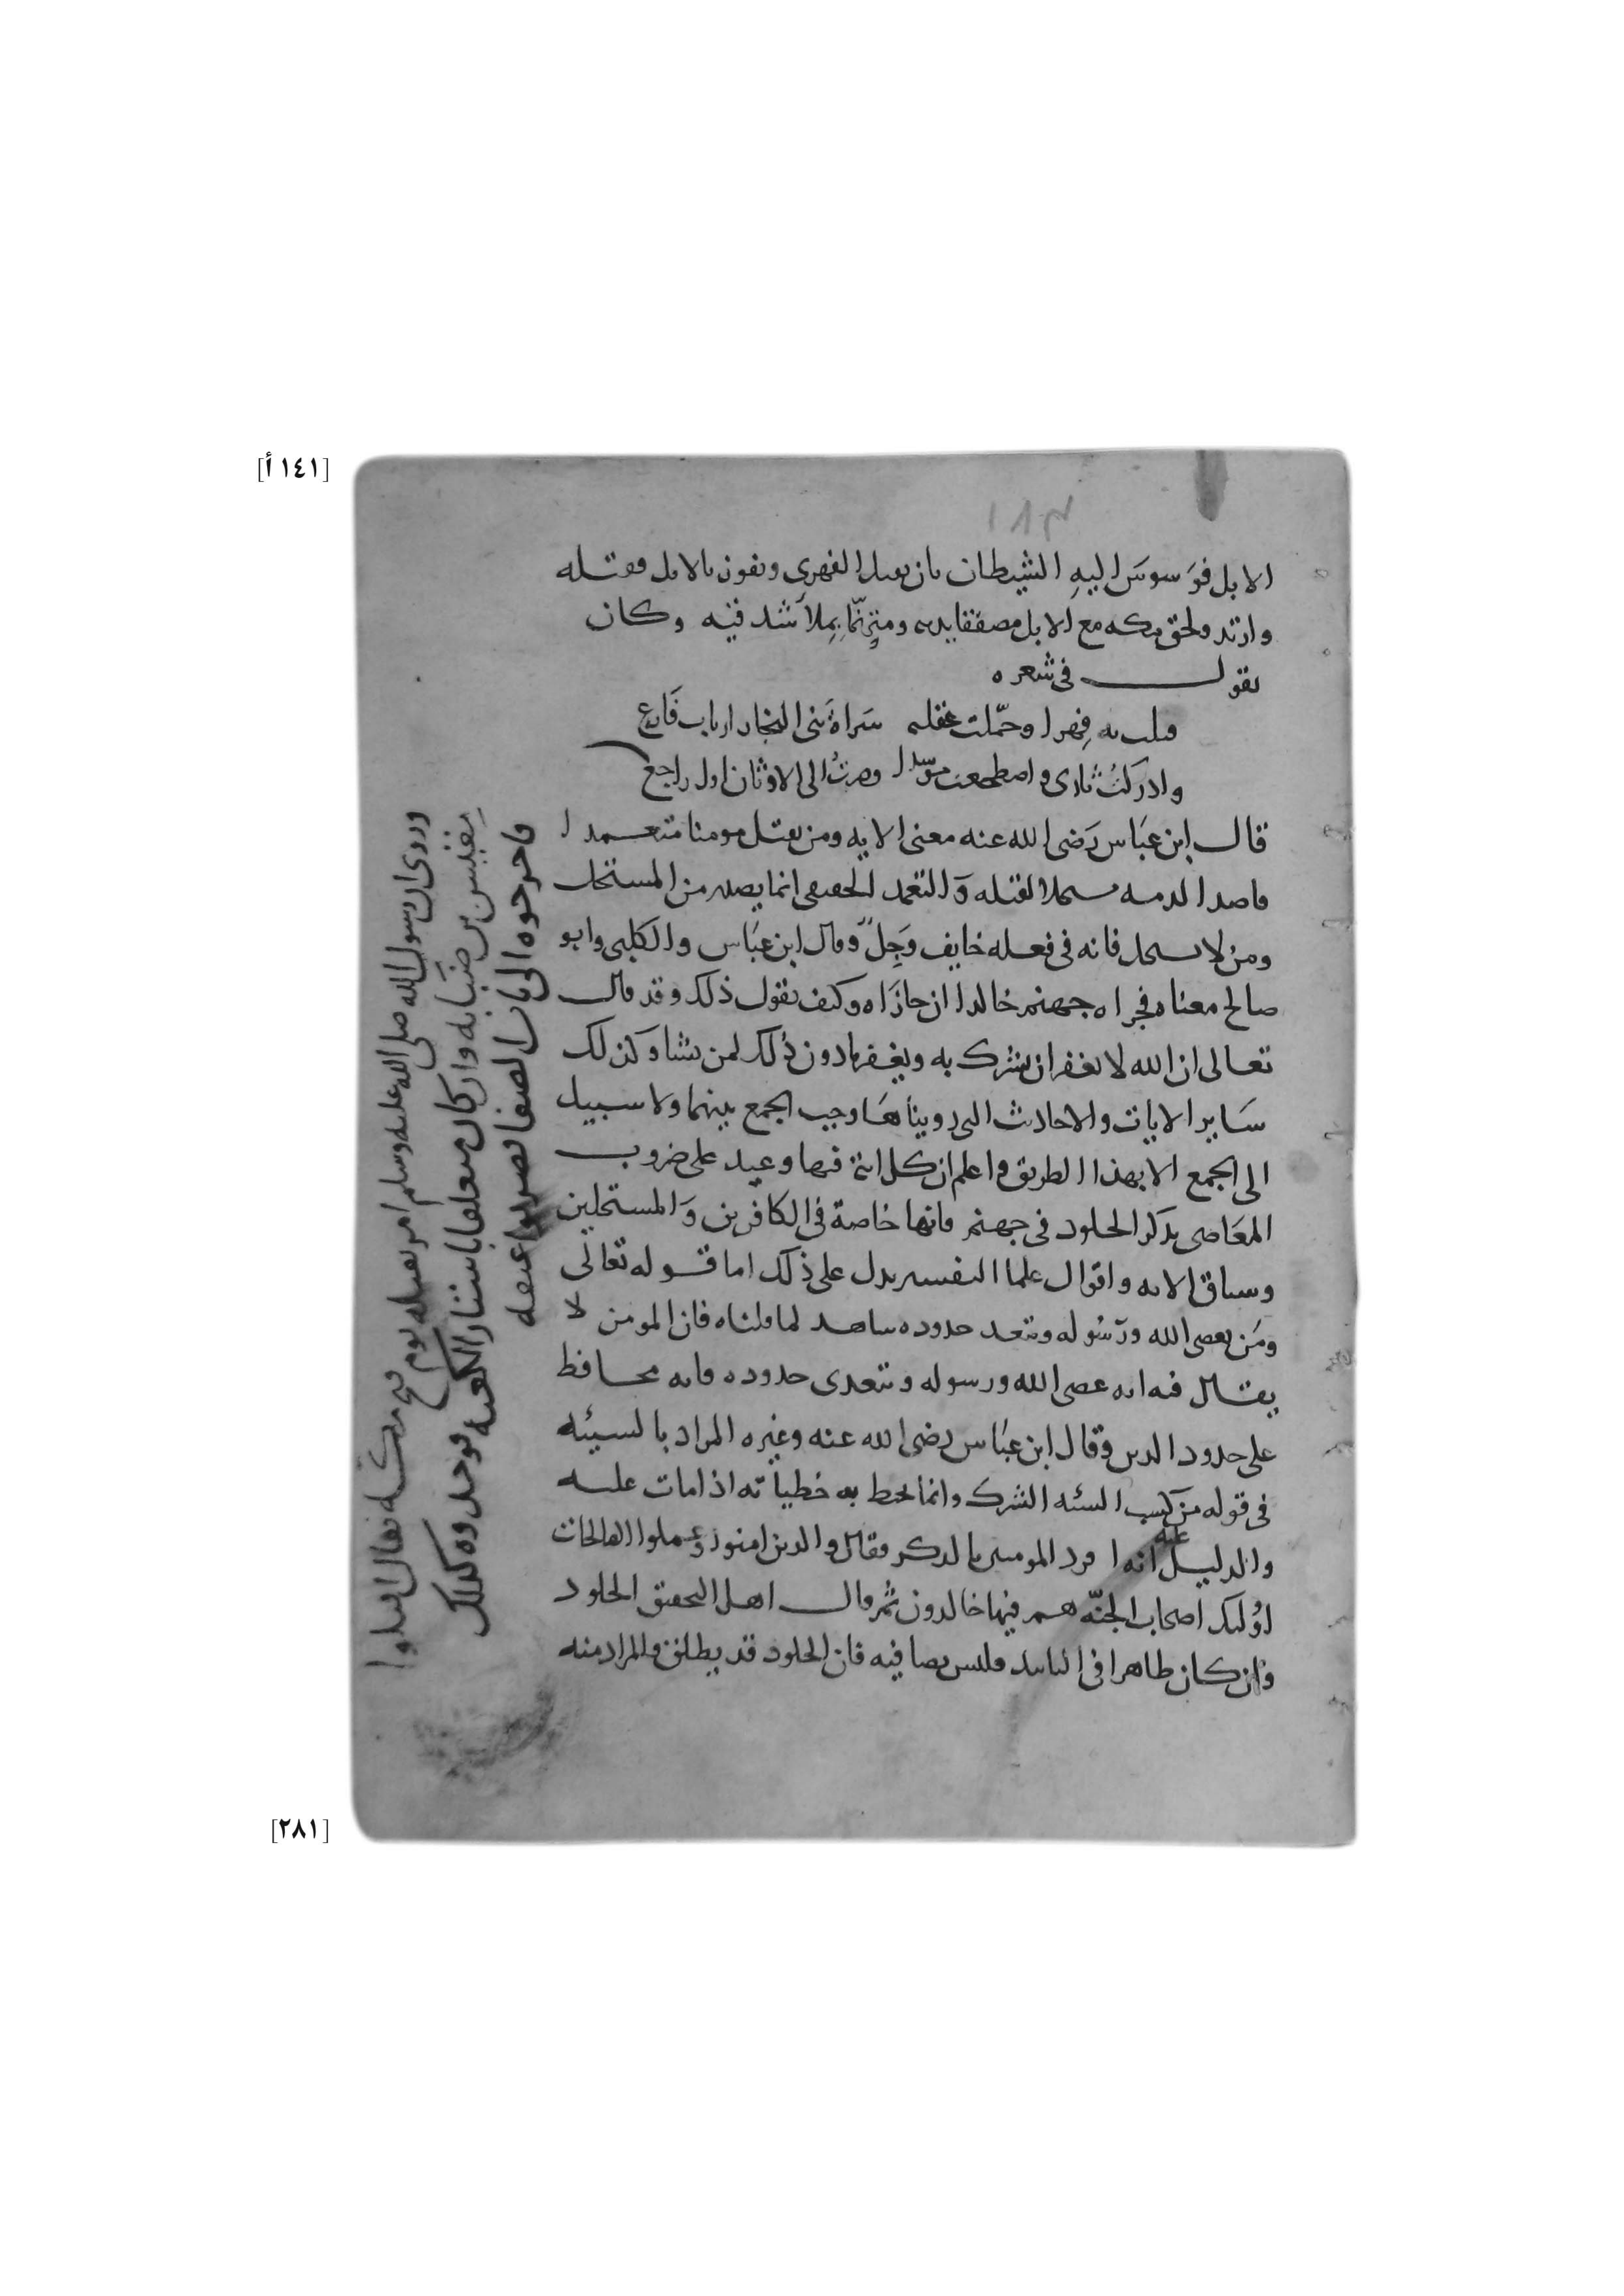 [١٤١ أ]
٢٨١
الابل فوسوس اليه الشيطان بان يقتل الفهري ويفوز بالابل فقتله
وارتد ولحق بمكه مع الابل ومترنما فيه وكان
يقول في شعره
قتلت به فهرا وحملت عقله سراة بني النجار ارباب فارع
وادركت ثاري واضطجعت موسدا وصرت الى الاوثان اول راجع
قال ابن عباس رضي الله عنه معنى الايه ومن يقتل مومنا متعمدا
قاصدا لدمه مستحلا لقتله والتعمد الحقيقي انما يصدر من المستحل
ومن لا يستحل فانه في فعله خايف وجل وقال ابن عباس والكلبي وابو
صالح معناه فجزاه جهنم خالدا ان جازاه وكيف يقول ذلك وقد قال
تعالى ان الله لا يغفر ان يشرك به ويغفر ما دون ذلك لمن يشا وكذلك
ساير الايات والاحاديث التي رويناها وجب الجمع بينهما ولا سبيل
الى الجمع الا بهذا الطريق واعلم ان كل اية فيها وعيد على ضروب
المعاصي بذكر الخلود في جهنم فانها خاصة في الكافرين والمستحلين
وسياق الايه واقوال علما التفسير يدل على ذلك اما قوله تعالى
ومن يعصي الله ورسوله ويتعد حدوده شاهد لما قلناه فان المومن لا
يقال فيه انه عصى الله ورسوله وتعدى حدوده فانه محافظ
على حدود الدين وقال ابن عباس رضي الله عنه وغيره المراد بالسيئه
في قوله من كسب السيئه الشرك وانما تحيط به خطياته اذا مات عليه
والدليل عليه انه افرد المومنين بالذكر فقال والذين امنوا وعملوا الصالحات
اولئك اصحاب الجنة هم فيها خالدون ثم قال اهل التحقيق الخلود
وان كان ظاهرا في التابيد فليس نصا فيه فان الخلود قد يطلق والمراد منه
وروي ان رسول الله صلى الله عليه وسلم امر بقتله يوم فتح مكه فقال اقتلوا
مقيس بن ضبابه وان كان متعلقا باستار الكعبه فوجدوه كذلك
فاخرجوه الى باب الصفا فضربوا عنقه
[٢٨١]